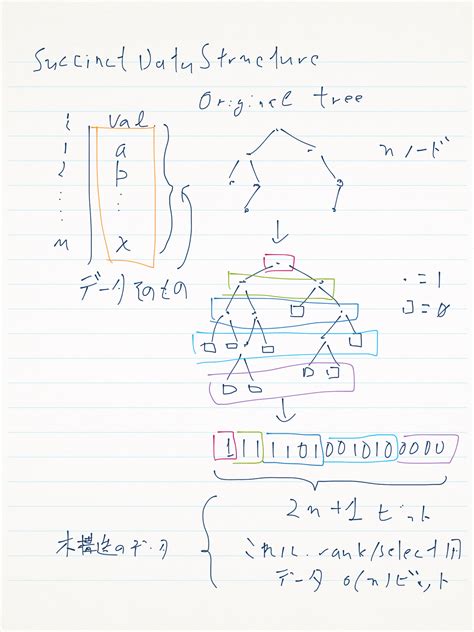 Succinct Data Structure
Original tree
i val
1 a
2 b
n x
nノード
データそのもの
・=1
□=0
1111101001010000
2n+1ビット
木構造のデータ
これに、rank/select用
データ o(n)ビット